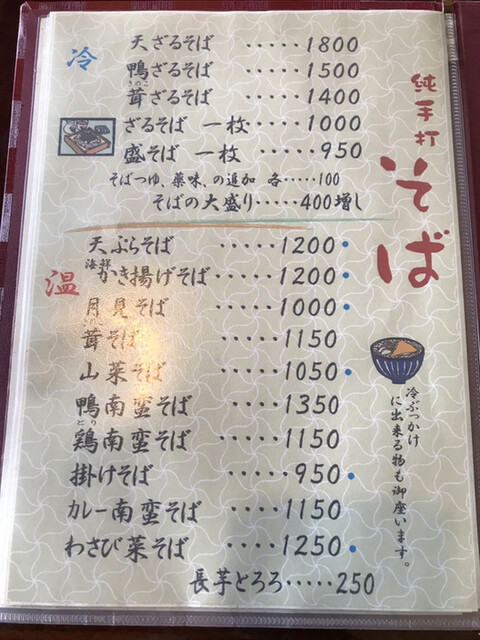 純手打
そば
冷
天ざるそば ‥‥‥1800
鴨ざるそば ‥‥‥1500
きのこ
茸ざるそば ‥‥‥1400
ざるそば 一枚‥‥1000
盛そば 一枚 ‥‥‥950
そばつゆ、薬味、の追加 各‥‥‥100
そばの大盛り‥‥‥400増し
温
天ぷらそば ‥‥‥1200•
海鮮
かき揚げそば‥‥‥1200•
月見そば ‥‥‥1000•
きのこ
茸そば ‥‥‥1150
山菜そば ‥‥‥1050•
鴨南蛮そば ‥‥‥1350
とり
鶏南蛮そば ‥‥‥1150
掛けそば ‥‥‥950•
カレー南蛮そば ‥‥‥1150
わさび菜そば ‥‥‥1250•
長芋とろろ‥‥‥250
冷ぶっかけ
に出来る物も御座います。